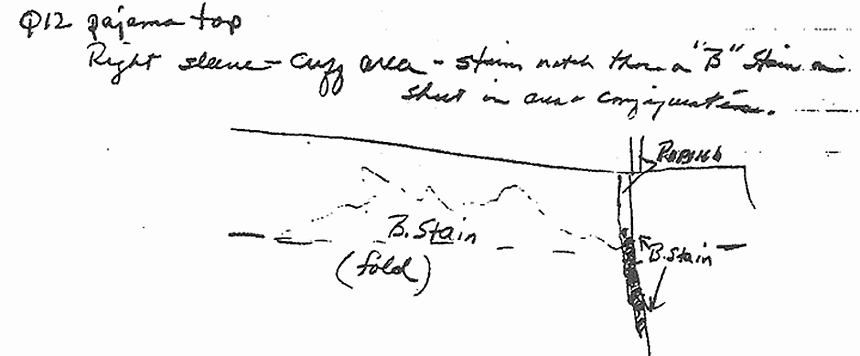 Q12 pajama top
Right sleeve - Cuff area - stains match those on "B" Stain on
sheet in area & configuration.
PIPING
B. Stain
(fold)
B. Stain